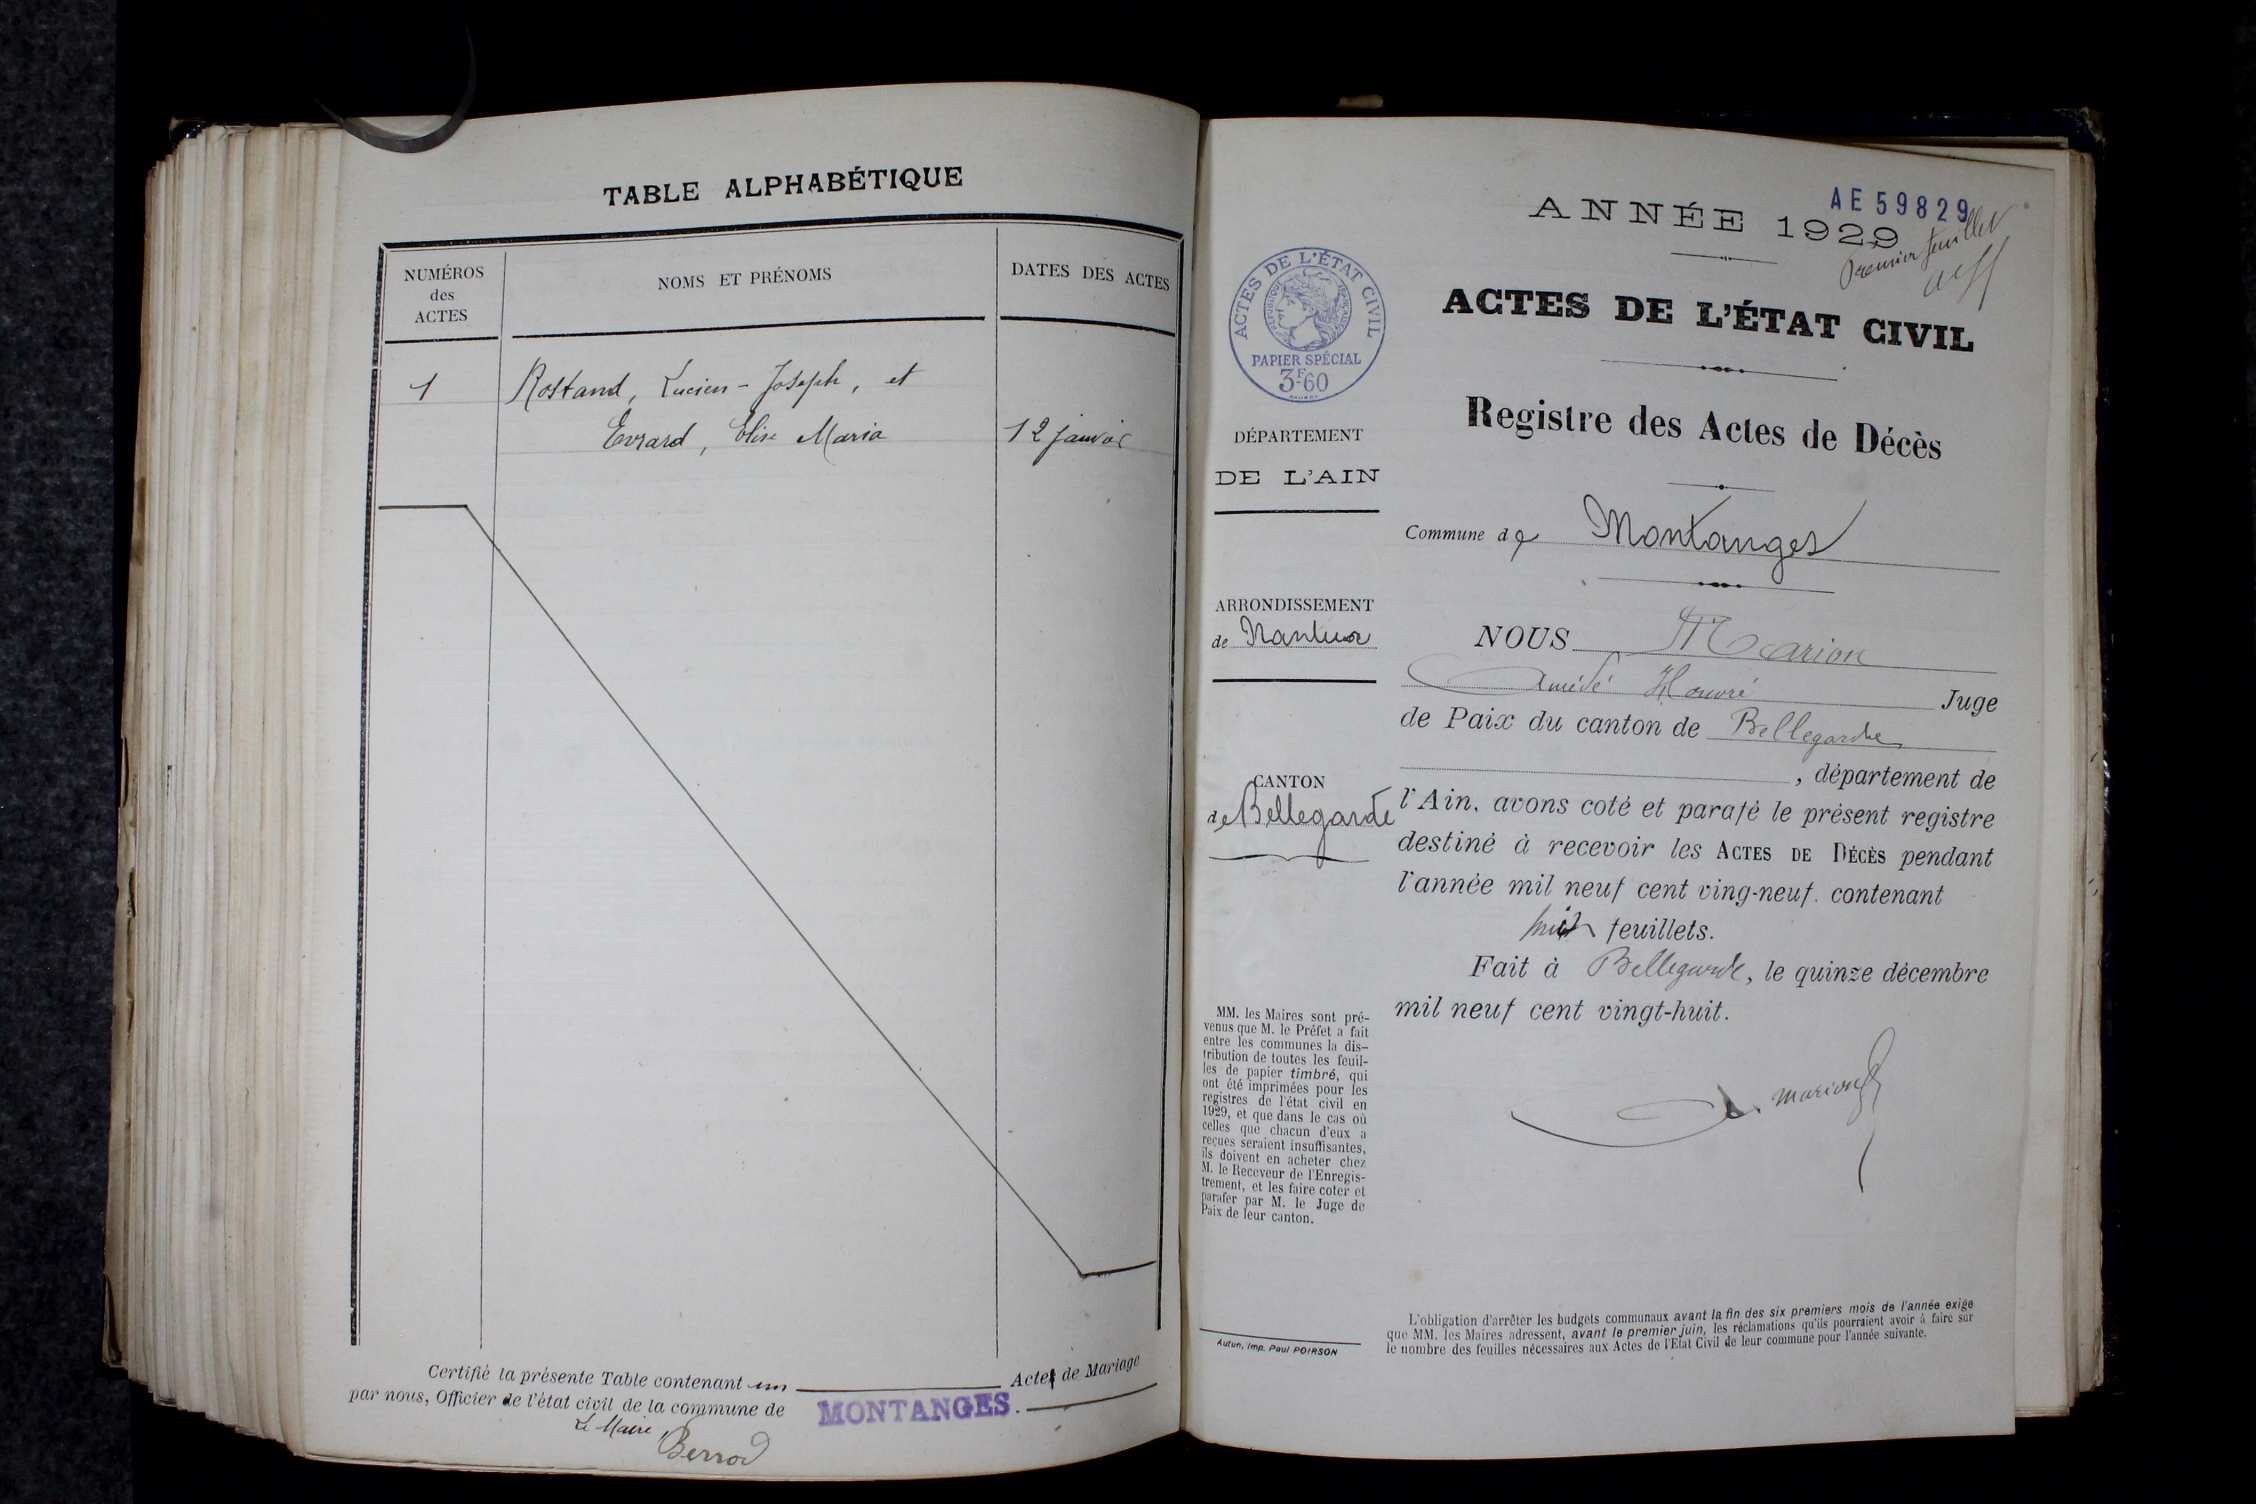 TABLE ALPHABÉTIQUE
NUMÉROS
des
ACTES
NOMS ET PRÉNOMS
DATES DES ACTES
1
Rostand, Lucien-Joseph, et
Evrard, Elise Maria
12 janvier
Certifié la présente Table contenant un
Acte de Mariage
par nous, Officier de l'état civil de la commune de
MONTANGES.
Le Maire,
Berrod
AE 59829
ANNÉE 1929
Premier feuillet
ACTES DE L'ÉTAT CIVIL
RÉPUBLIQUE FRANÇAISE
PAPIER SPÉCIAL
3F60
ACTES DE L'ÉTAT CIVIL
Registre des Actes de Décès
DÉPARTEMENT
DE L'AIN
Commune de Montanges
ARRONDISSEMENT
de Nantua
CANTON
de Bellegarde
NOUS Marion
Amédé Honoré Juge
de Paix du canton de Bellegarde
, département de
l'Ain, avons coté et parafé le présent registre
destiné à recevoir les ACTES DE DÉCÈS pendant
l'année mil neuf cent ving-neuf. contenant
huit feuillets.
Fait à Bellegarde, le quinze décembre
mil neuf cent vingt-huit.
A. Marion
MM. les Maires sont pré-
venus que M. le Préfet a fait
entre les communes la dis-
tribution de toutes les feuil-
les de papier timbré, qui
ont été imprimées pour les
registres de l'état civil en
1929, et que dans le cas où
celles que chacun d'eux a
reçues seraient insuffisantes,
ils doivent en acheter chez
M. le Receveur de l'Enregis-
trement, et les faire coter et
parafer par M. le Juge de
Paix de leur canton.
Autun, Imp. Paul POIRSON
L'obligation d'arrêter les budgets communaux avant la fin des six premiers mois de l'année exige
que MM. les Maires adressent, avant le premier juin, les réclamations qu'ils pourraient avoir à faire sur
le nombre des feuilles nécessaires aux Actes de l'Etat Civil de leur commune pour l'année suivante.